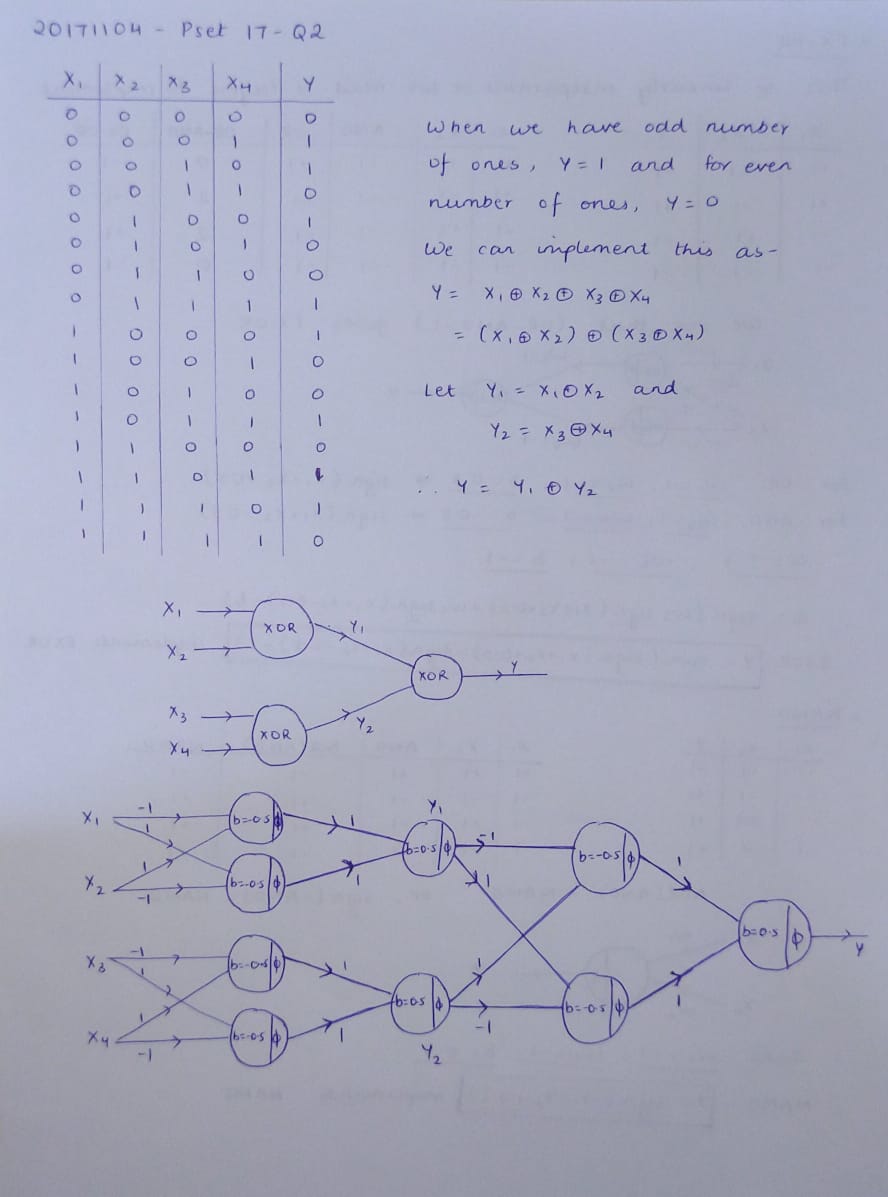 20171104 - Pset 17 - Q2
X₁ X₂ X₃ X₄ Y
0 0 0 0 0
0 0 0 1 1
0 0 1 0 1
0 0 1 1 0
0 1 0 0 1
0 1 0 1 0
0 1 1 0 0
0 1 1 1 1
1 0 0 0 1
1 0 0 1 0
1 0 1 0 0
1 0 1 1 1
1 1 0 0 0
1 1 0 1 1
1 1 1 0 1
1 1 1 1 0
When we have odd number
of ones, Y = 1 and for even
number of ones, Y = 0
We can implement this as-
Y = X₁ ⊕ X₂ ⊕ X₃ ⊕ X₄
= (X₁ ⊕ X₂) ⊕ (X₃ ⊕ X₄)
Let Y₁ = X₁ ⊕ X₂ and
Y₂ = X₃ ⊕ X₄
∴ Y = Y₁ ⊕ Y₂
X₁
XOR Y₁
X₂
XOR Y
X₃
XOR Y₂
X₄
X₁ -1 1 b=-0.5 ϕ 1
Y₁
b=0.5 ϕ -1 1
b=-0.5 ϕ 1
X₂ 1 -1 b=-0.5 ϕ 1
b=0.5 ϕ Y
X₃ -1 1 b=-0.5 ϕ 1
b=0.5 ϕ 1 -1
b=-0.5 ϕ 1
X₄ 1 -1 b=-0.5 ϕ 1
Y₂